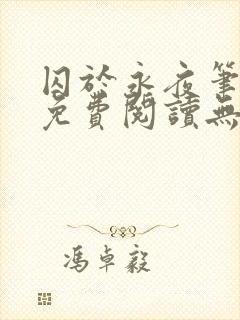 囚於永夜筆
免費閱讀無
馮卓毅